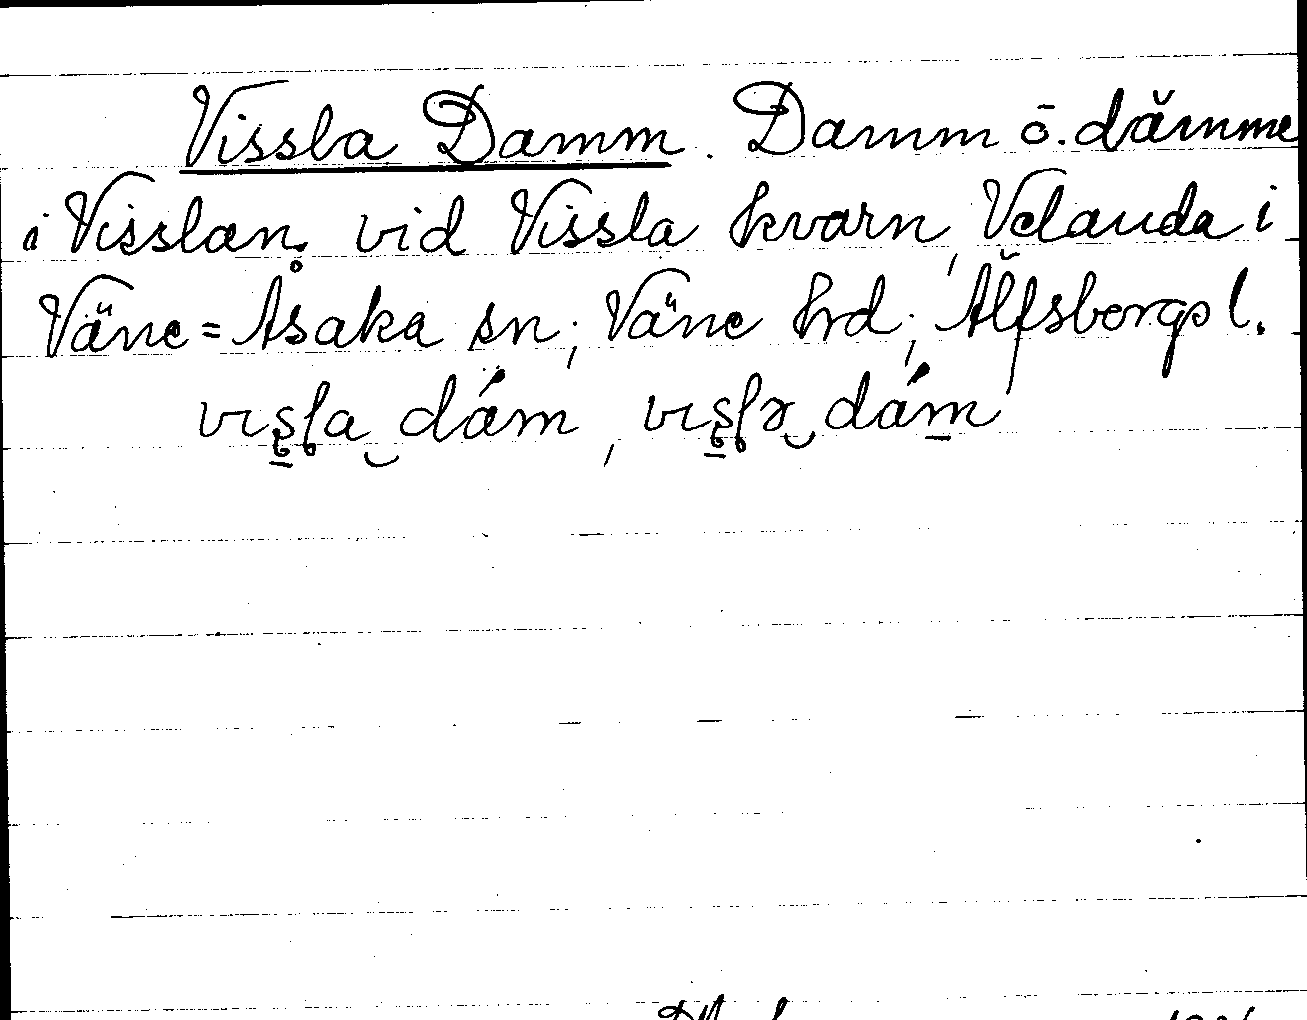 Vissla Damm. Damm o. dämme
i Visslan vid Vissla kvarn, Velanda i
Väne=Åsaka sn; Väne hrd; Älfsborgs l.